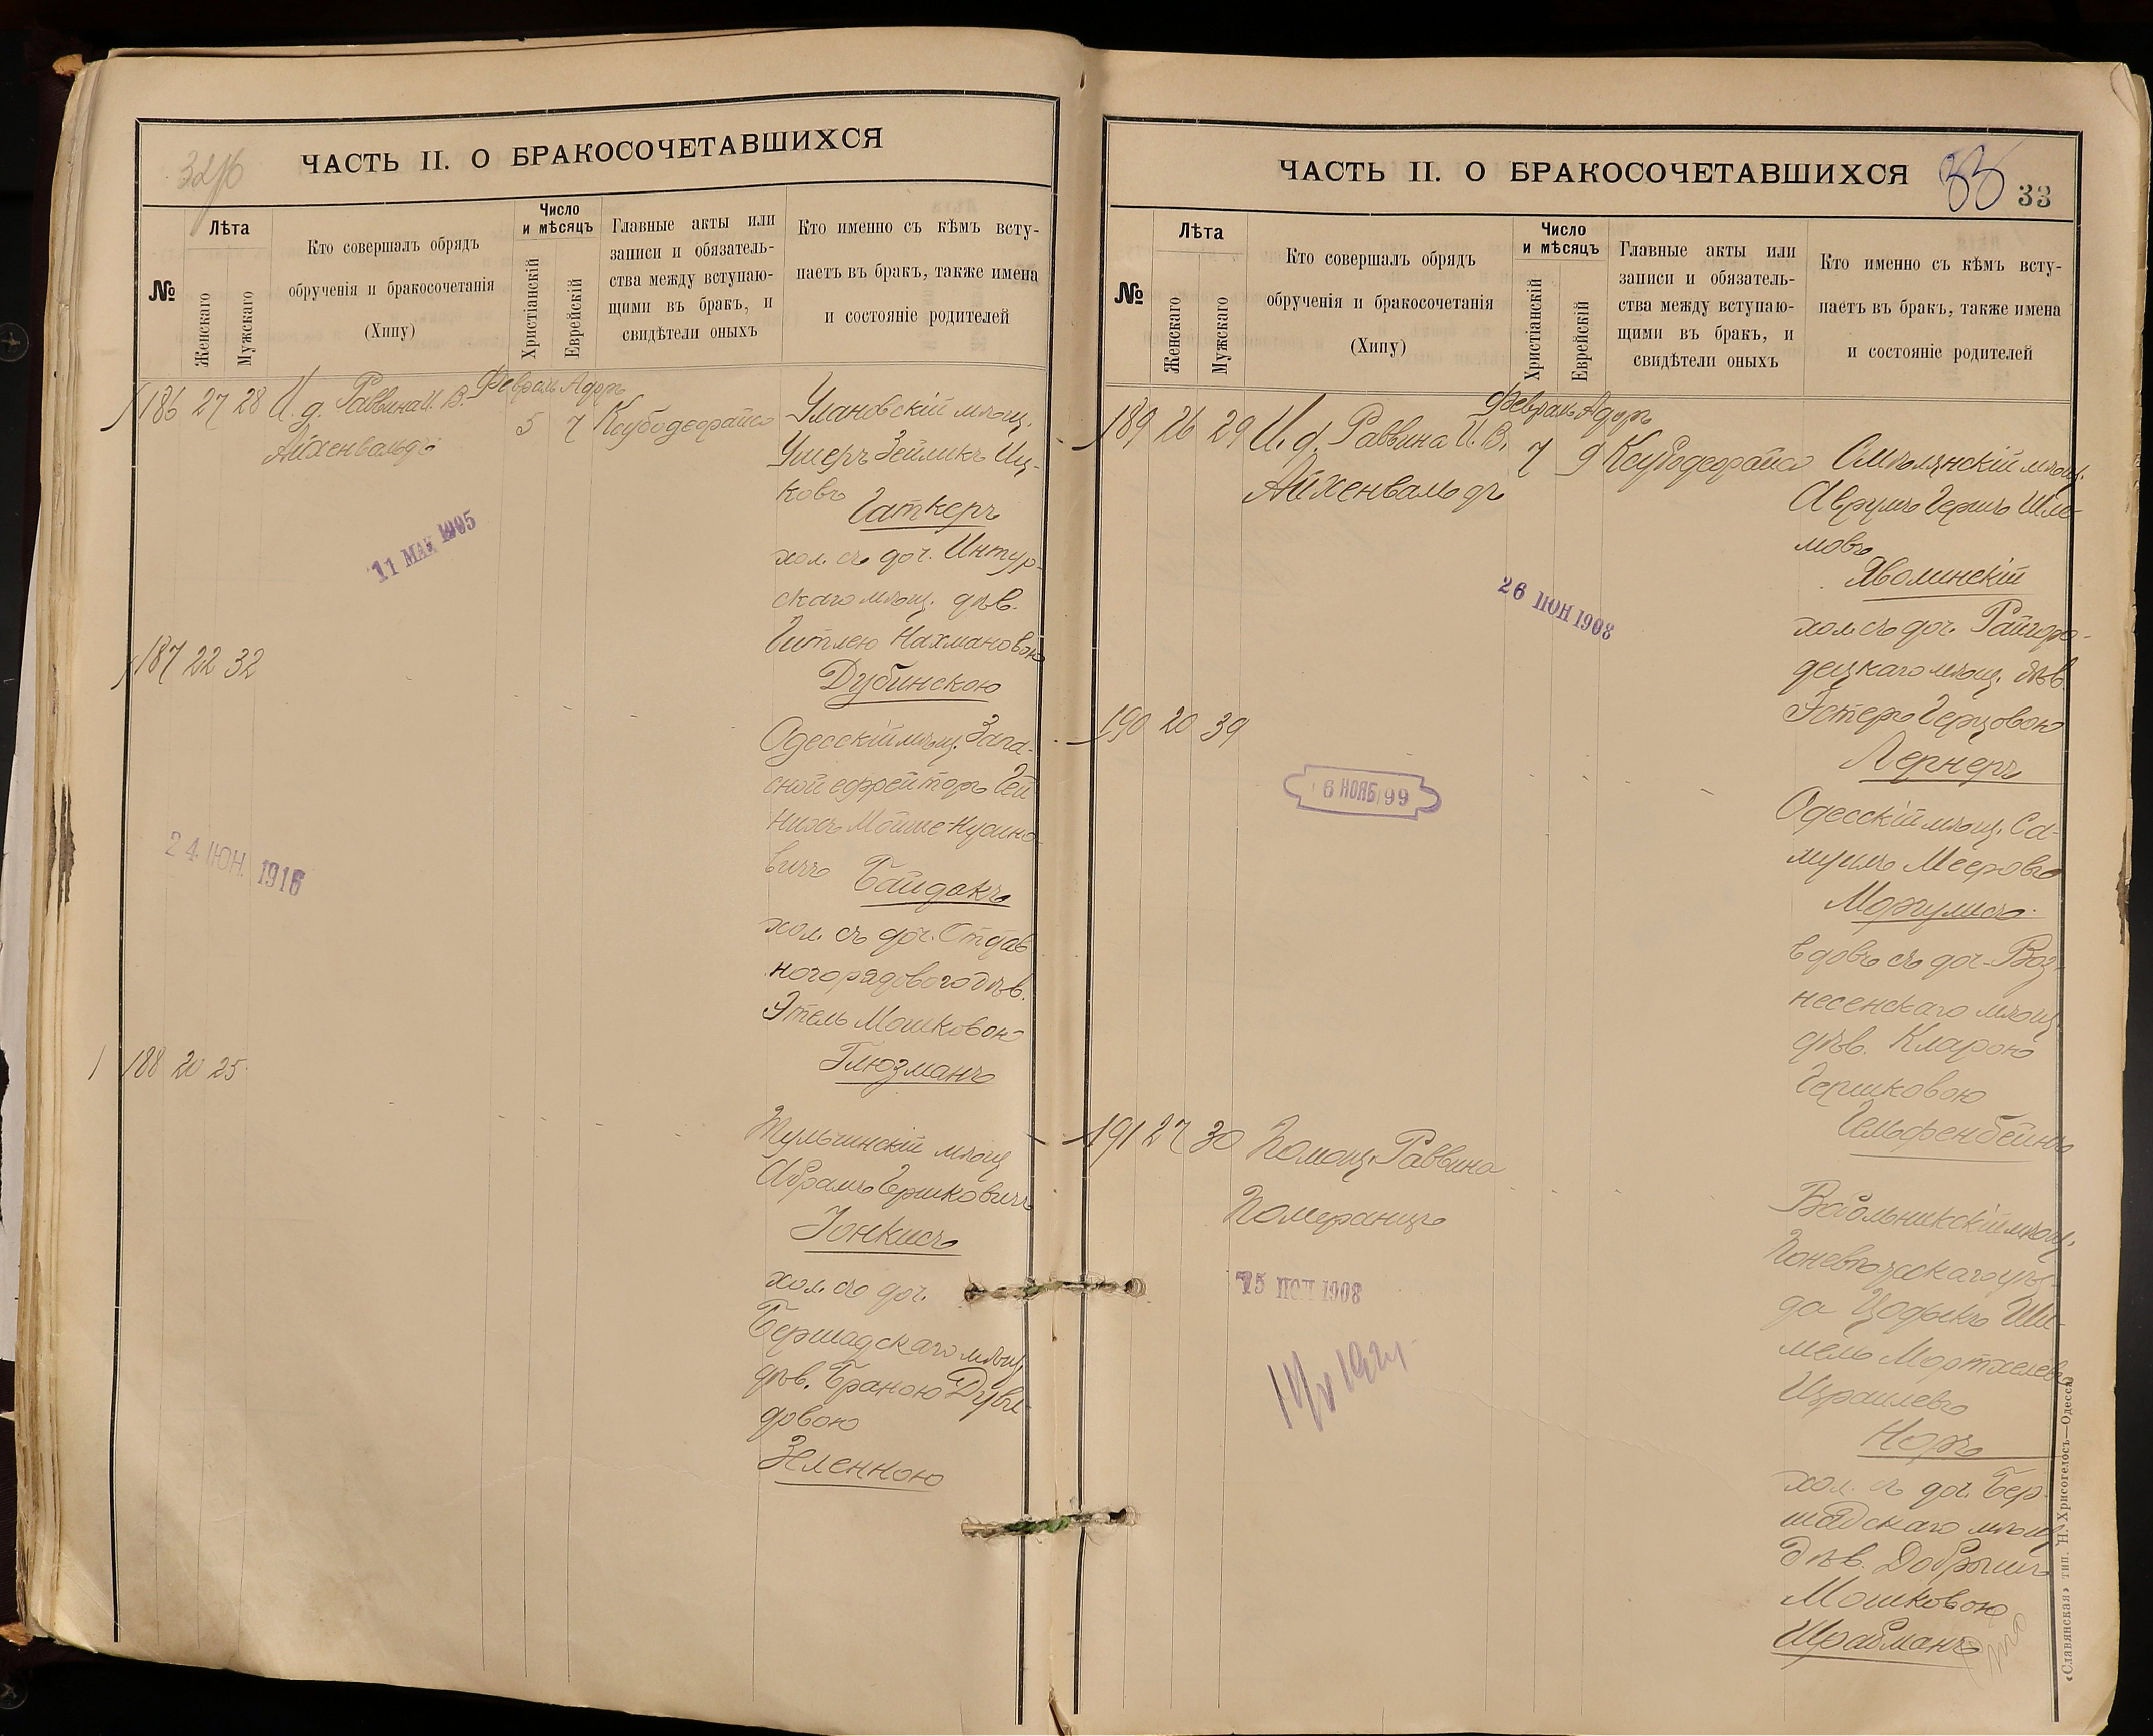 3216
ЧАСТЬ II. О БРАКОСОЧЕТАВШИХСЯ
№
Лѣта
Женскаго
Мужскаго
Кто совершалъ обрядъ
обрученія и бракосочетанія
(Хипу)
Число
и мѣсяцъ
Христіанскій
Еврейскій
Главные акты или
записи и обязатель-
ства между вступаю-
щими въ бракъ, и
свидѣтели оныхъ
Кто именно съ кѣмъ всту-
паетъ въ бракъ, также имена
и состояніе родителей
Февраль Адаръ
186 27 28 И. д. Раввина И. В. 5 7 Ксубодеорайсо Улановскій мѣщ.
Айхенвальдъ
Ушеръ Зейликъ Иц-
ковъ
Гаткеръ
хол. съ доч. Интур-
скаго мѣщ. дѣв.
Гитлею Нахмановою
Дубинскою
11 МАЯ 1905
187 22 32
Одесскій мѣщ. Запа-
сной ефрейторъ Гей
нихъ Мойше-Нусино-
вичъ Байдакъ
хол. съ доч. Отстав
ного рядового дѣв.
Этель Мошковою
Глюзманъ
24 ІЮН. 1916
188 20 25
Тульчинскій мѣщ
Абрамъ Гершковичъ
Іонкисъ
хол. съ доч.
Бершадскаго мѣщ.
дѣв. Браною Дувы-
довою
Зеленною
ЧАСТЬ II. О БРАКОСОЧЕТАВШИХСЯ
33
33
№
Лѣта
Женскаго
Мужскаго
Кто совершалъ обрядъ
обрученія и бракосочетанія
(Хипу)
Число
и мѣсяцъ
Христіанскій
Еврейскій
Главные акты или
записи и обязатель-
ства между вступаю-
щими въ бракъ, и
свидѣтели оныхъ
Кто именно съ кѣмъ всту-
паетъ въ бракъ, также имена
и состояніе родителей
Февраль Адаръ
189 26 29 И. д. Раввина И. В. 7 9 Ксубодеорайсо Смѣлянскій мѣщ.
Айхенвальдъ
Аврумъ Гершъ Шле-
мовъ
Яволинскій
хол. съ доч. Райгоро-
децкаго мѣщ. дѣв.
Эстеръ Герцовою
Лернеръ
26 ІЮН 1908
190 20 39
Одесскій мѣщ. Са-
муилъ Мееровъ
Моргулисъ
вдовъ съ доч. Воз-
несенскаго мѣщ.
дѣв. Кларою
Гершковою
Гельфенбейнъ
6 НОЯБ 99
191 27 30 Помощ. Раввина
Померанцъ
Вобольникскій мѣщ.
Поневѣжскаго уѣз
да Цодыкъ Ши-
мель Мортхелевъ
Израилевъ
Норъ
хол. съ доч. Бер-
шадскаго мѣщ
дѣв. Добрышъ
Мошковою
Шрабманъ
1908
«Славянская» тип. Н. Хрисогелосъ—Одесса